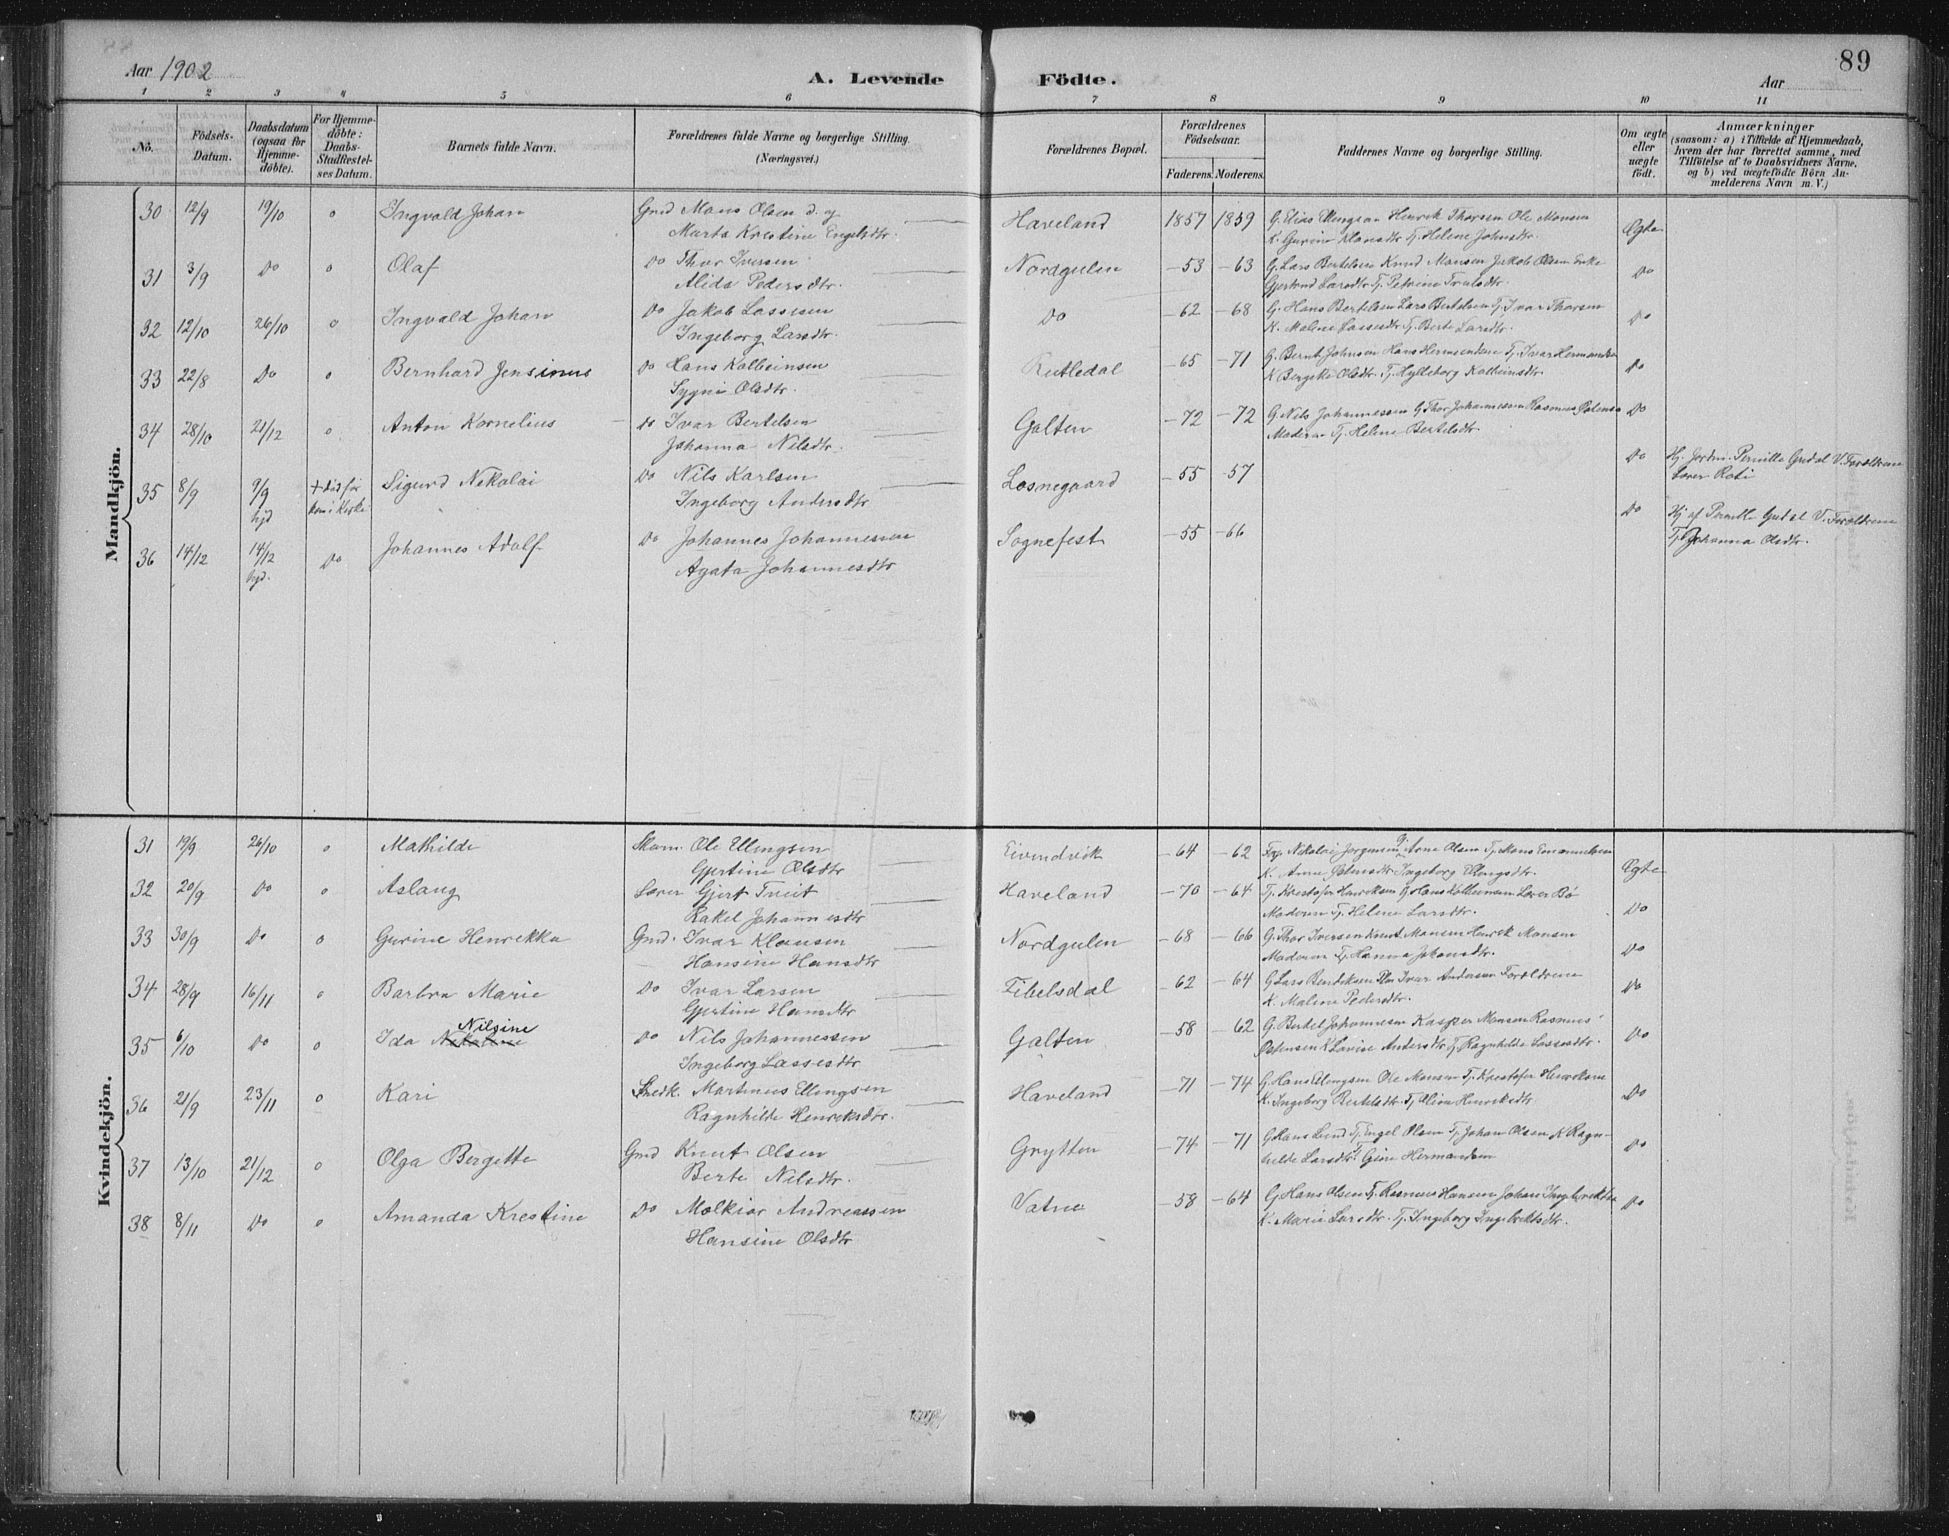 89
Aar 1902
A. Levende Födte.
Aar
1 2 3 4 5 6 7 8 9 10 11
No.
Födsels-
Datum.
Daabsdatum
(ogsaa for
Hjemme-
döbte).
For Hjemme-
döbte:
Daabs-
Stadfæstel-
ses Datum.
Barnets fulde Navn.
Forældrenes fulde Navne og borgerlige Stilling.
(Næringsvei.)
Forældrenes Bopæl.
Forældrenes
Födselsaar.
Faderens. Moderens.
Faddernes Navne og borgerlige Stilling.
Om ægte
eller
uægte
födt.
Anmærkninger
(saasom: a) i Tilfælde af Hjemmedaab,
hvem der har forrettet samme, med
Tilföielse af to Daabsvidners Navne,
og b) ved uægtefödte Börn An-
melderens Navn m. V.)
Mandkjön.
30 12/9 19/10 o Ingvald Johan Gmd Mons Olsen d. og Haveland 1857 1859 G. Elias Ellingsen Henrik Thorsen Ole Monsen Ægte
Marta Kristine Engelsdtr. K. Gurine Klausdtr Tj. Helene Johnsdtr.
31 3/9 Do o Olaf Do Thor Iversen Nordgulen -53 -63 G. Lars Bertelsen Knud Monsen Jakob Olsen Enke Do
Alida Pedersdtr. Gjertrud Larsdtr Tj. Petrine Trulsdtr.
32 12/10 26/10 o Ingvald Johan Do Jakob Lassesen Do -62 -68 G. Hans Bertelsen Lars Bertelsen Tj. Ivar Thorsen Do
Ingeborg Larsdtr. K. Malene Lassesdtr Tj. Berte Larsdtr.
33 22/8 Do o Bernhard Jensinus Do Hans Kolbeinsen Rutledal -65 -71 G. Bernt Johnsen Hans Tj. Ivar Hermandsen Do
Sygni Olsdtr. K Bergitte Olsdtr. Tj. Hylleborg Kolbeinsdtr.
34 28/10 21/12 o Anton Kornelius Do Ivar Bertelsen Galten -72 -72 G. Nils Johannessen G Thor Johannessen Rasmus Østensen Do
Johanna Nilsdtr. Moderen Tj. Helene Bertelsdtr.
35 8/9 9/9 + død før Sigurd Nikolai Do Nils Karlsen Losnegaard -55 -57 Do Hj. Jordm. Pernille Gudal V. Forældrene
hjd kom i Kirke Ingeborg Andersdtr Lærer
36 14/12 14/12 Do Johannes Adolf Do Johannes Johannessen Sognefest -55 -66 Do Hj af Pernille Gudal V. Forældrene
hjd. Agata Johannesdtr Tj. Johanna Olsdtr.
Kvindekjön.
31 19/9 26/10 o Mathilde Skom. Ole Ellingsen Eivindvik -64 -62 Nikolai Jørgensen G Arne Olsen Tj. Hans Ægte
Gjertine Olsdtr K. Anne Ingeborg Ellingsdtr.
32 20/9 Do o Aslaug Lærer Gjert Tveit Haveland -70 -64 Tj. Kristofer Henriksen G Hans Kolbeinsen Lærer Bø Do
Rakel Johannesdtr Moderen Tj. Helene Larsdtr.
33 30/9 Do o Gurine Henrikka Gmd. Ivar Klausen Nordgulen -68 -66 G. Thor Iversen Knut Monsen Henrik Monsen Do
Hansine Hansdtr Moderen Tj. Hanna Jakobsdtr.
34 28/9 16/11 o Barbra Marie Do Ivar Larsen Fibelsdal -62 -64 G Lars Bendiksen Ivar Andersen Forældrene Do
Gjertine Hansdtr K. Malene Pedersdtr.
35 6/10 Do o Ida Nilsine Do Nils Johannessen Galten -58 -62 G. Bertel Johannesen Kasper Monsen Rasmus Do
Ingeborg Lassesdtr Østensen K Lavise Andersdtr Tj. Ragnhilde Lassesdtr.
36 21/9 23/11 o Kari Skedk. Martinus Ellingsen Haveland -71 -74 G. Hans Ellingsen Ole Monsen Tj. Kristofer Henriksen Do
Ragnhilde Henriksdtr. K. Ingeborg Bertelsdtr. Tj Elise Henriksdtr
37 13/10 21/12 o Olga Bergette Gmd Knut Olsen Grytten -74 -71 G Hans Lund Tj. Engel Olsen Tj. Johan Olsen K Ragn- Do
Berte Nilsdtr. hilde Larsdtr. Tj Hermandsen
38 8/11 Do o Amanda Kristine Do Molkior Andreassen Vatne -58 -64 G Hans Olsen Tj. Rasmus Hansen Johan Ingebriktsen Do
Hansine Olsdtr K. Marie Larsdtr. Tj. Ingeborg Ingebriktsdtr.